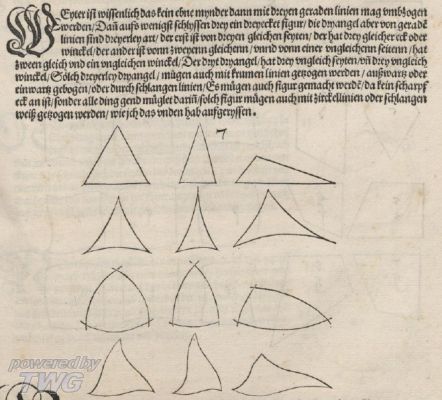 WEyter ist wissenlich das kein ebne mynder dann mit dreyen geraden linien mag vmbzogen
werden / Dañ aufs wenigst schlyssen drey ein dreyecket figur / die dryangel aber von geradẽ
linien sind dreyerley art / der erst ist von dreyen gleichen seyten / der hat drey gleicher eck oder
winckel / der ander ist vonn zweyenn gleichenn / vnnd vonn einer vngleichenn seitenn / hat
zween gleich vnd ein vngleichen winckel. Der dryt dryangel / hat drey vngleich seyten / vñ drey vngleich
winckel / Solch dreyerley dryangel / mügen auch mit krumen linien getzogen werden / außwartz oder
einwartz gebogen / oder durch schlangen linien / Es mügen auch figur gemacht werdẽ / da kein scharpf
eck an ist / sonder alle ding gend müglet dariñ / solch figur mügen auch mit zirckellinien oder schlangen
weiß getzogen werden / wie jch das vnden hab aufgeryssen.
7
powered by
TWG